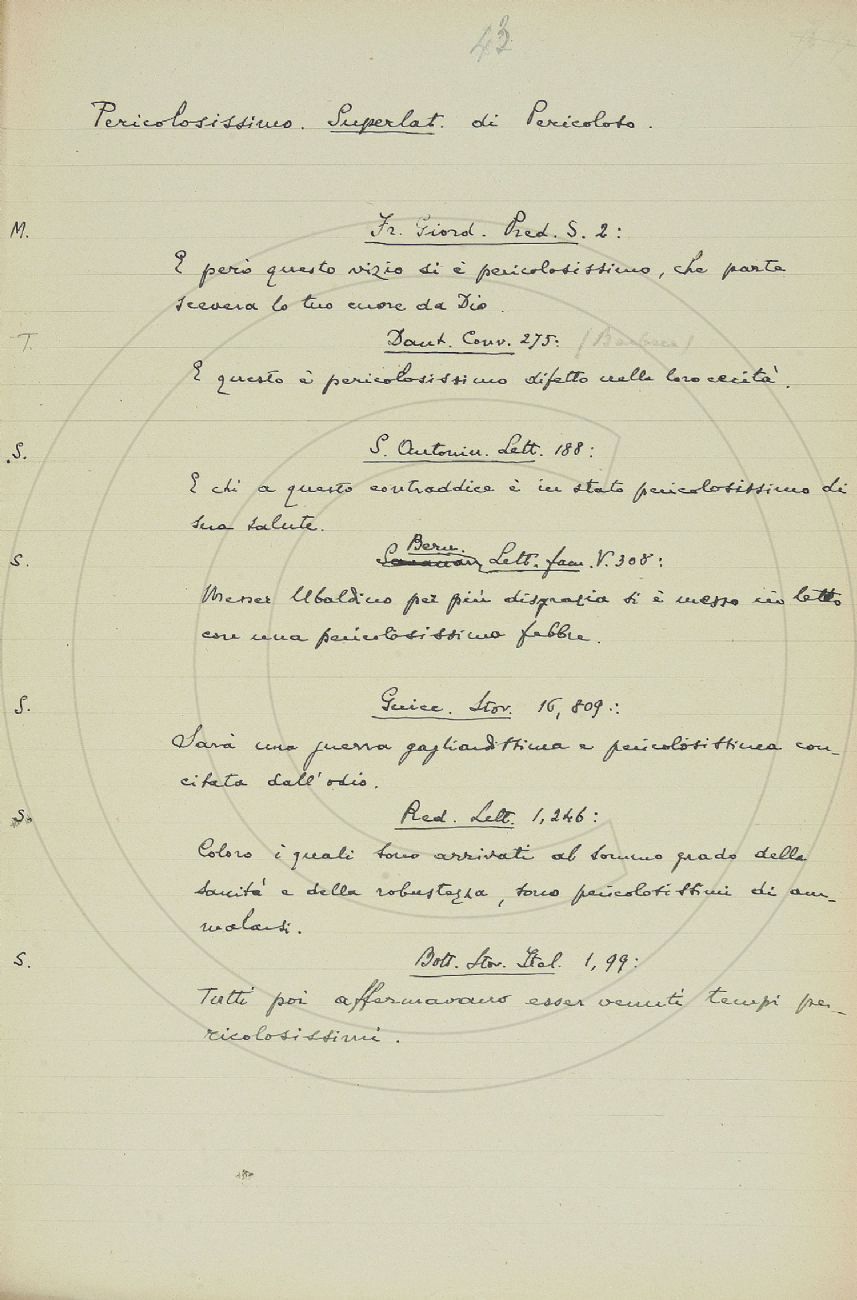 43
Pericolosissimo. Superlat. di Pericoloso.
M.
Fr. Giord. Pred. S. 2:
E però questo vizio si è pericolosissimo, che parte
scevera lo tuo cuore da Dio.
T.
Dant. Conv. 275: (Barbera)
E questo è pericolosissimo difetto nella loro cecità.
S.
S. Antonin. Lett. 188:
E chi a questo contraddice è in stato pericolosissimo di
sua salute.
S.
Bern.
Lett. fam. V. 308:
Messer Ubaldino per più disgrazia si è messo in letto
con una pericolosissima febbre.
S.
Guicc. Stor. 16, 809:
Sarà una guerra gagliardissima e pericolosissima con-
citata dall'odio.
S.
Red. Lett. 1, 246:
Coloro i quali sono arrivati al sommo grado della
sanità e della robustezza, sono pericolosissimi di am-
malarsi.
S.
Bott. Stor. Ital. 1, 99:
Tutti poi affermavano esser venuti tempi pe-
ricolosissimi.